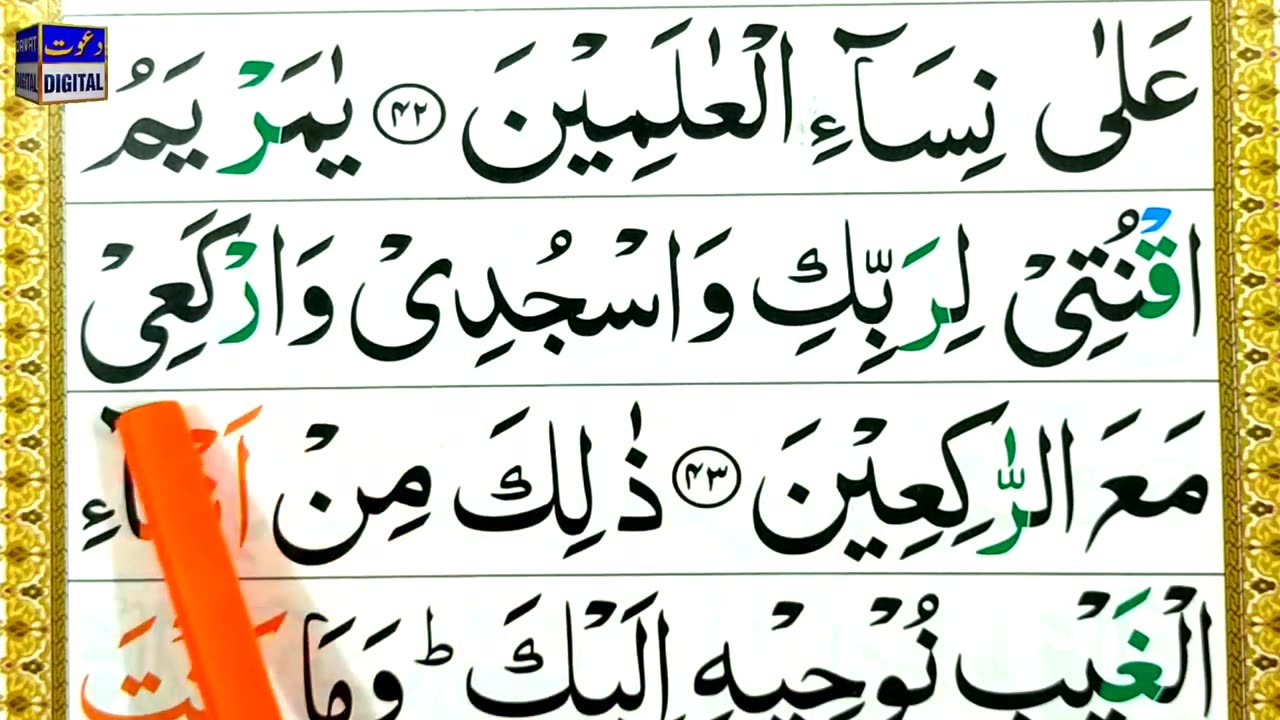 دعوت
DAWAT
DIGITAL
DIGITAL
عَلٰى نِسَآءِ الْعٰلَمِیْنَ ﴿۴۲﴾ یٰمَرْیَمُ
اقْنُتِیْ لِرَبِّكِ وَاسْجُدِیْ وَارْكَعِیْ
مَعَ الرّٰكِعِیْنَ ﴿۴۳﴾ ذٰلِكَ مِنْ
الْغَیْبِ نُوْحِیْهِ اِلَیْكَ ؕ وَمَا